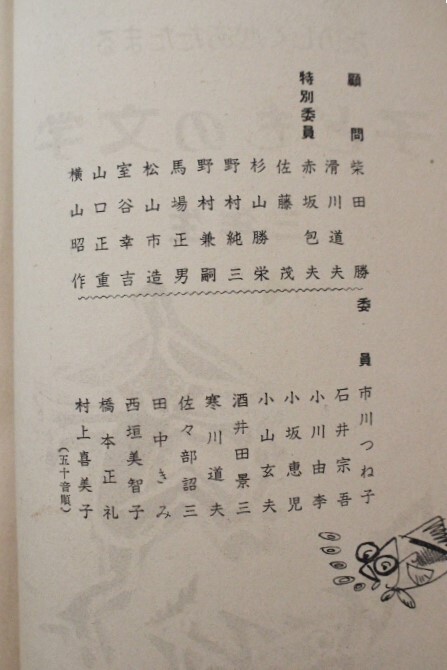 顧問 柴田勝
滑川道夫
特別委員 赤坂包夫
佐藤茂
杉山勝栄
野村純三
野村兼嗣
馬場正男
松山市造
室谷幸吉
山口正重
横山昭作
委員 市川つね子
石井宗吾
小川由李
小坂恵児
小山玄夫
酒井田景三
寒川道夫
佐々部詔三
田中きみ
西垣美智子
橋本正礼
村上喜美子
(五十音順)